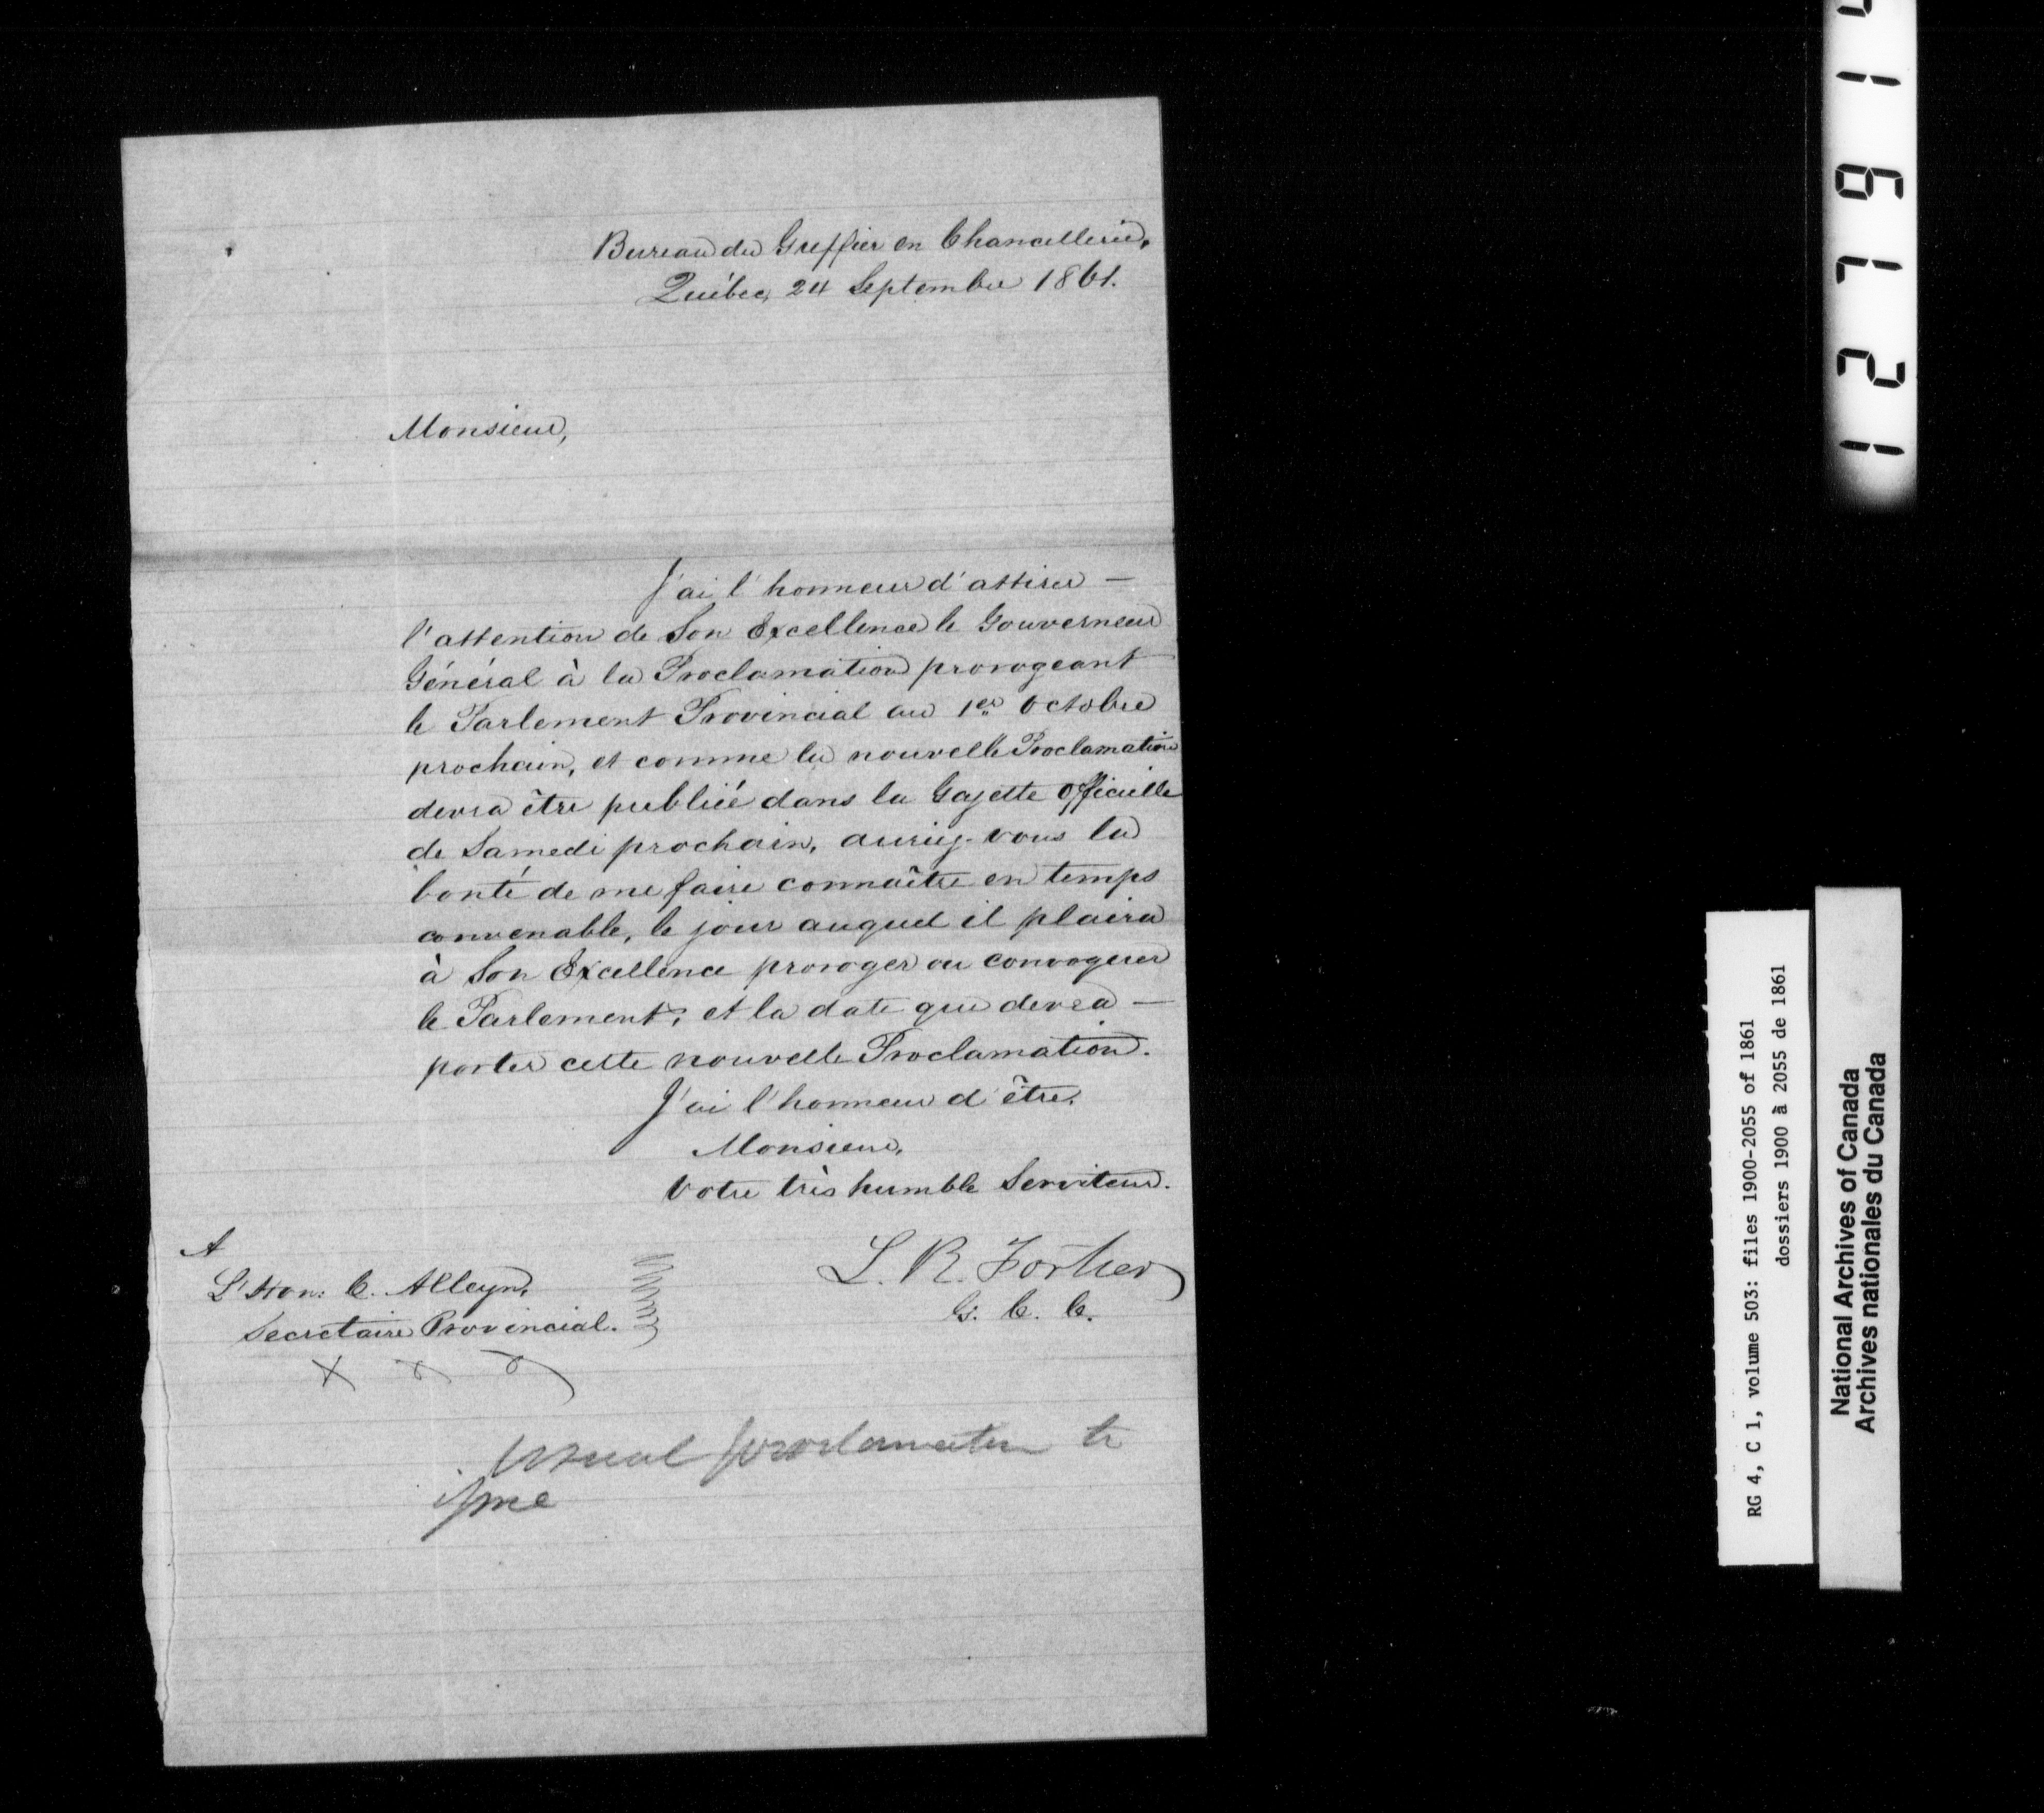 Bureau du Greffier en Chancellerie,
Québec, 24 Septembre 1861.
Monsieur,
J'ai l'honneur d'attirer —
l'attention de Son Excellence le Gouverneur
Général à la Proclamation prorogeant
le Parlement Provincial au 1er Octobre
prochain, et comme la nouvelle Proclamation
devra être publiée dans la Gazette Officielle
de Samedi prochain, auriez-vous la
bonté de me faire connaître en temps
convenable, le jour auquel il plaira
à Son Excellence proroger ou convoquer
le Parlement; et la date que devra —
porter cette nouvelle Proclamation.
J'ai l'honneur d'être,
Monsieur,
Votre très humble Serviteur.
L. R. Fortier
G. C. C.
A
L'Hon: C. Alleyn,
Secrétaire Provincial.
usual proclamation to
RG 4, C 1, volume 503: files 1900-2055 of 1861
dossiers 1900 à 2055 de 1861
National Archives of Canada
Archives nationales du Canada
12719